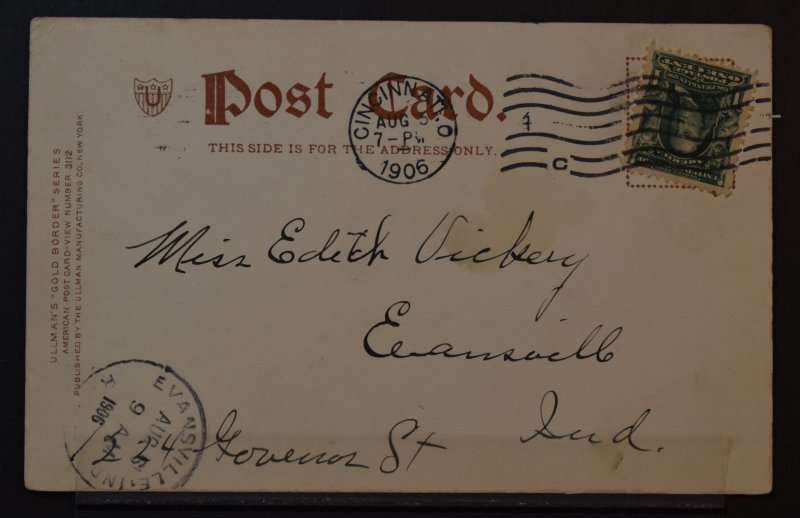 U
Post Card.
THIS SIDE IS FOR THE ADDRESS ONLY.
CINCINNATI, O
AUG
7-PM
1906
C
ULLMAN'S "GOLD BORDER" SERIES
AMERICAN POST CARD-VIEW NUMBER 3112
PUBLISHED BY THE ULLMAN MANUFACTURING CO., NEW YORK
Miss Edith Vickery
Evansville
Ind.
Govenor St
EVANSVILLE, IND
AUG
9 A
1906
ONE CENT
POSTAGE